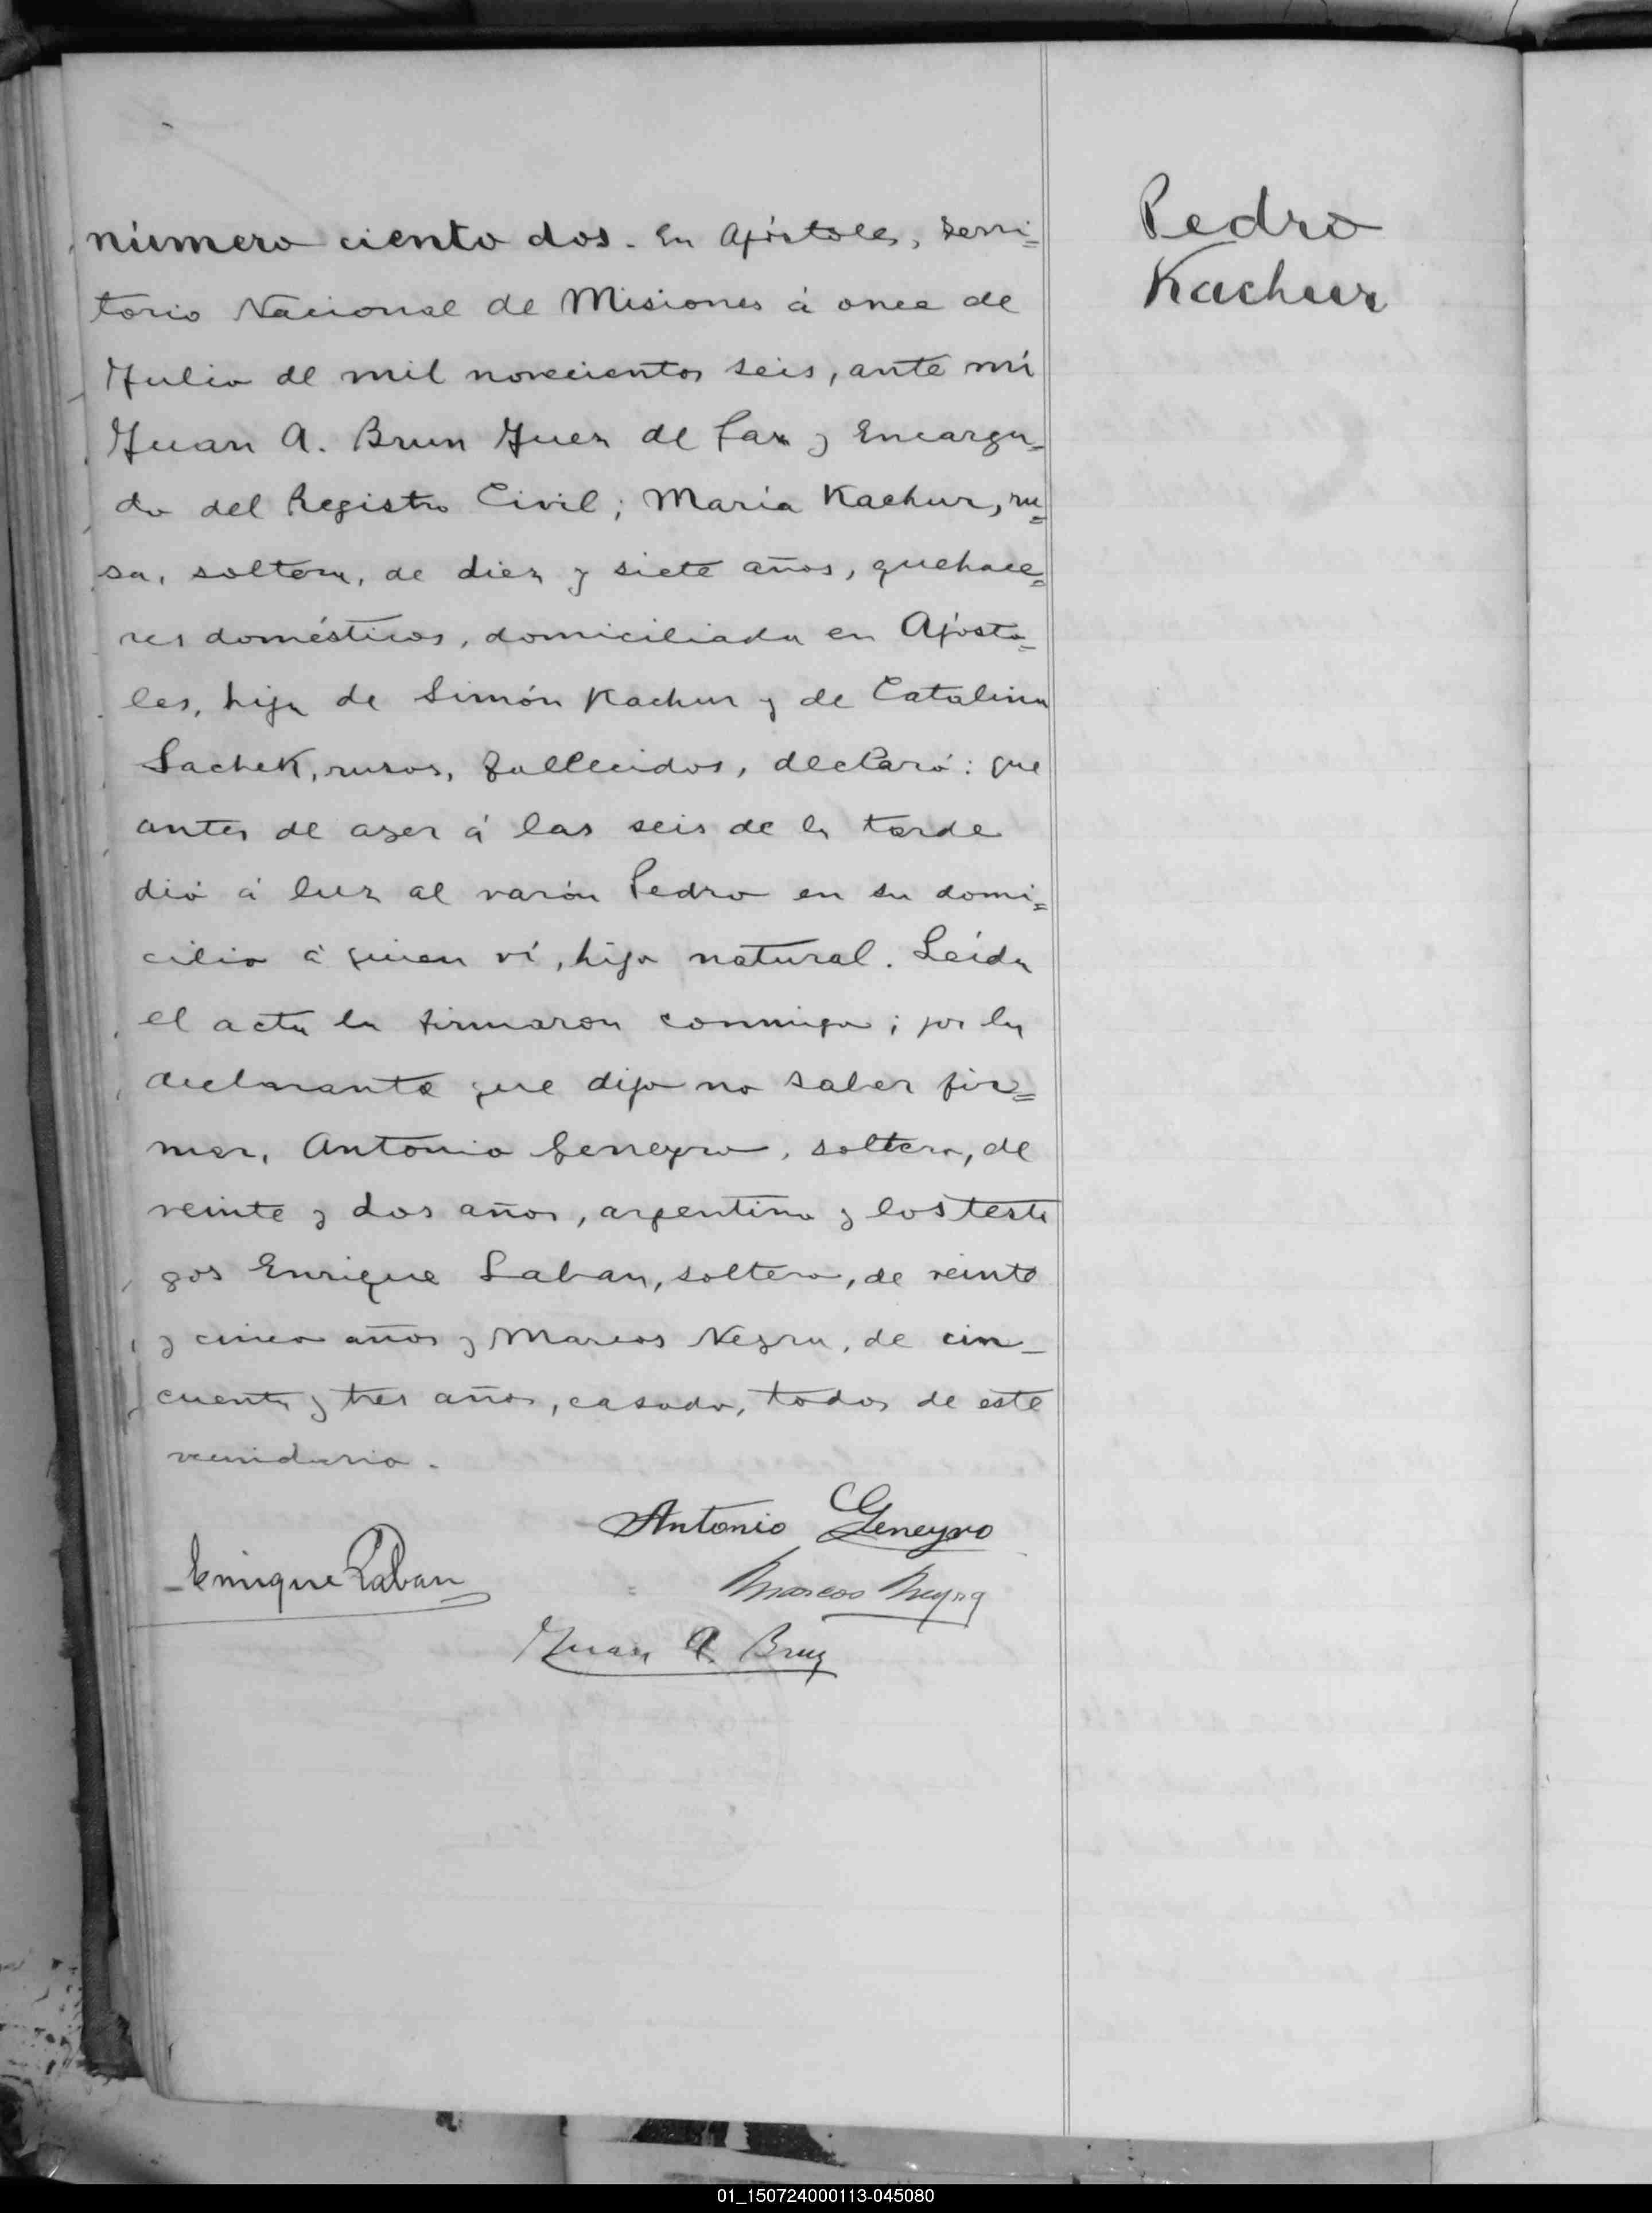 número ciento dos. En Apóstoles, Terri=
torio Nacional de Misiones á once de
Julio de mil novecientos seis, ante mí
Juan A. Brun Juez de Paz y Encarga=
do del Registro Civil; María Kachur, ru=
sa, soltera, de diez y siete años, quehace=
res domésticos, domiciliada en Apósto=
les, hija de Simón Kachur y de Catalina
Sachek, rusos, fallecidos, declaró: que
antes de ayer á las seis de la tarde
dió á luz al varón Pedro en su domi=
cilio á quien ví, hijo natural. Leída
el acta la firmaron conmigo; por la
declarante que dijo no saber fir=
mar, Antonio Geneyro, soltero, de
veinte y dos años, argentino y los testi
gos Enrique Laban, soltero, de veinte
y cinco años y Marcos Neyra, de cin_
cuenta y tres años, casado, todos de este
vecindario.
Antonio Geneyro
Enrique Laban
Marcos Neyra
Juan A. Brun
Pedro
Kachur
01_150724000113-045080